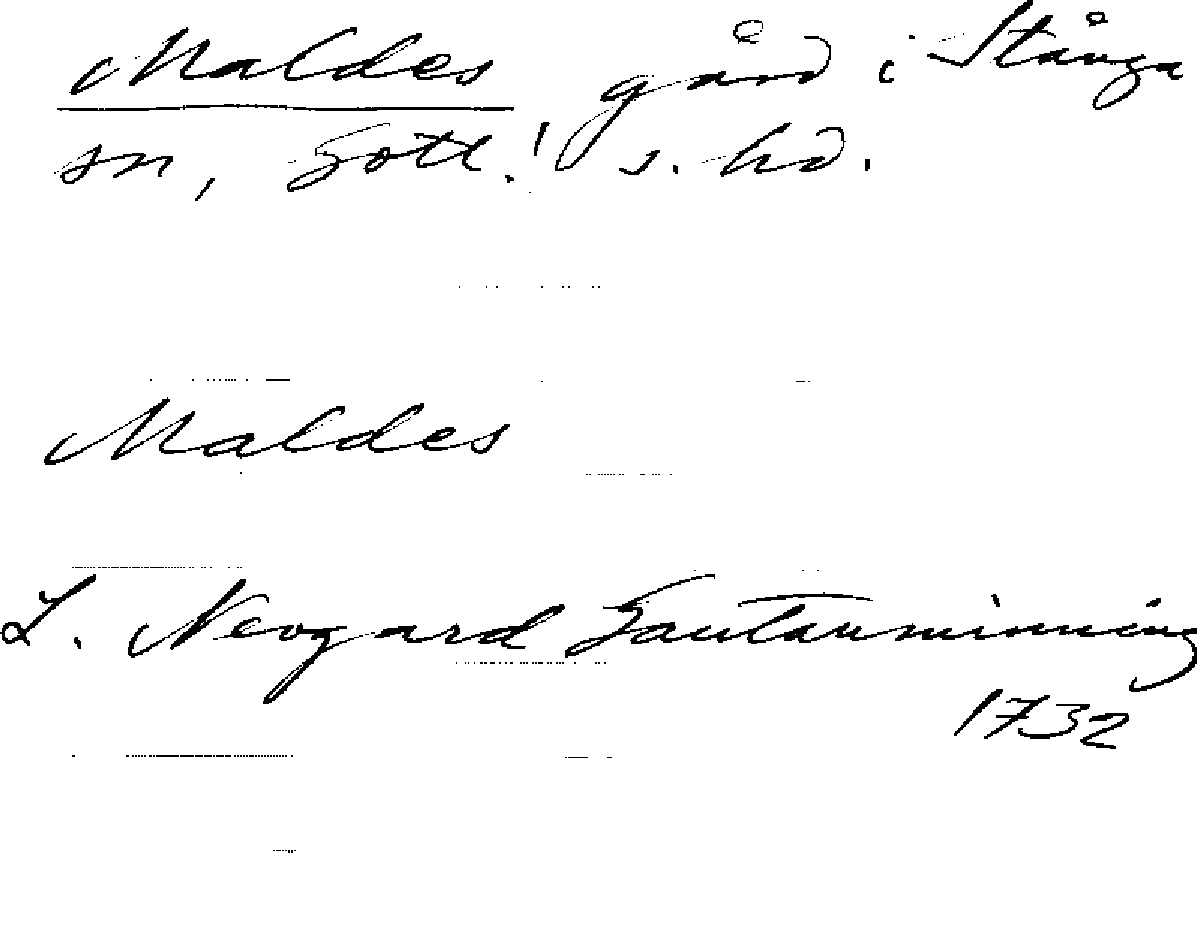 Maldes gård i Stånga
sn, Gotl:s s. hd.
Maldes
L. Neogard Gautauminning
1732